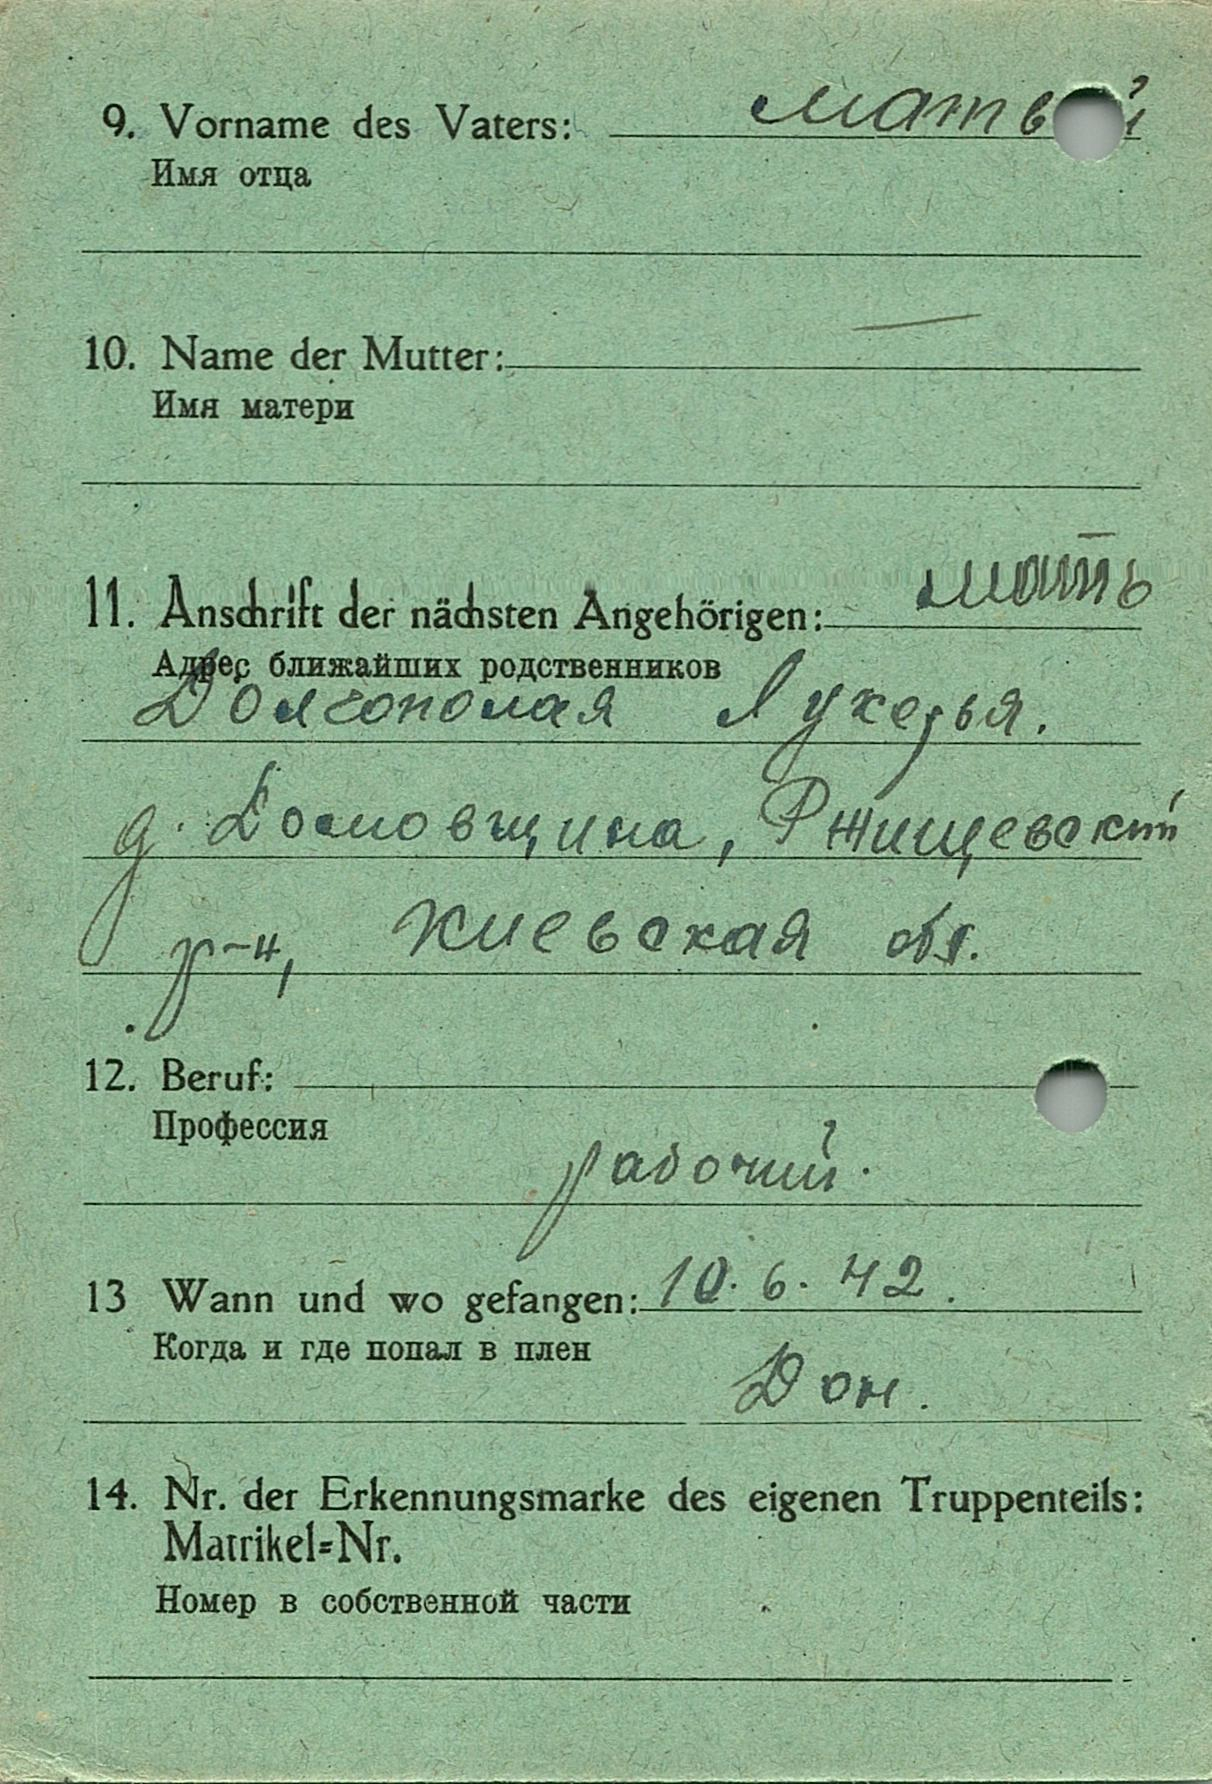 9. Vorname des Vaters: Матвей
Имя отца
10. Name der Mutter: —
Имя матери
11. Anschrift der nächsten Angehörigen: мать
Адрес ближайших родственников
Долгополая Лукерья.
д. Ржищевский
р-н, Киевская обл.
12. Beruf:
Профессия
рабочий.
13 Wann und wo gefangen: 10. 6. 42.
Когда и где попал в плен
Дон.
14. Nr. der Erkennungsmarke des eigenen Truppenteils:
Matrikel=Nr.
Номер в собственной части